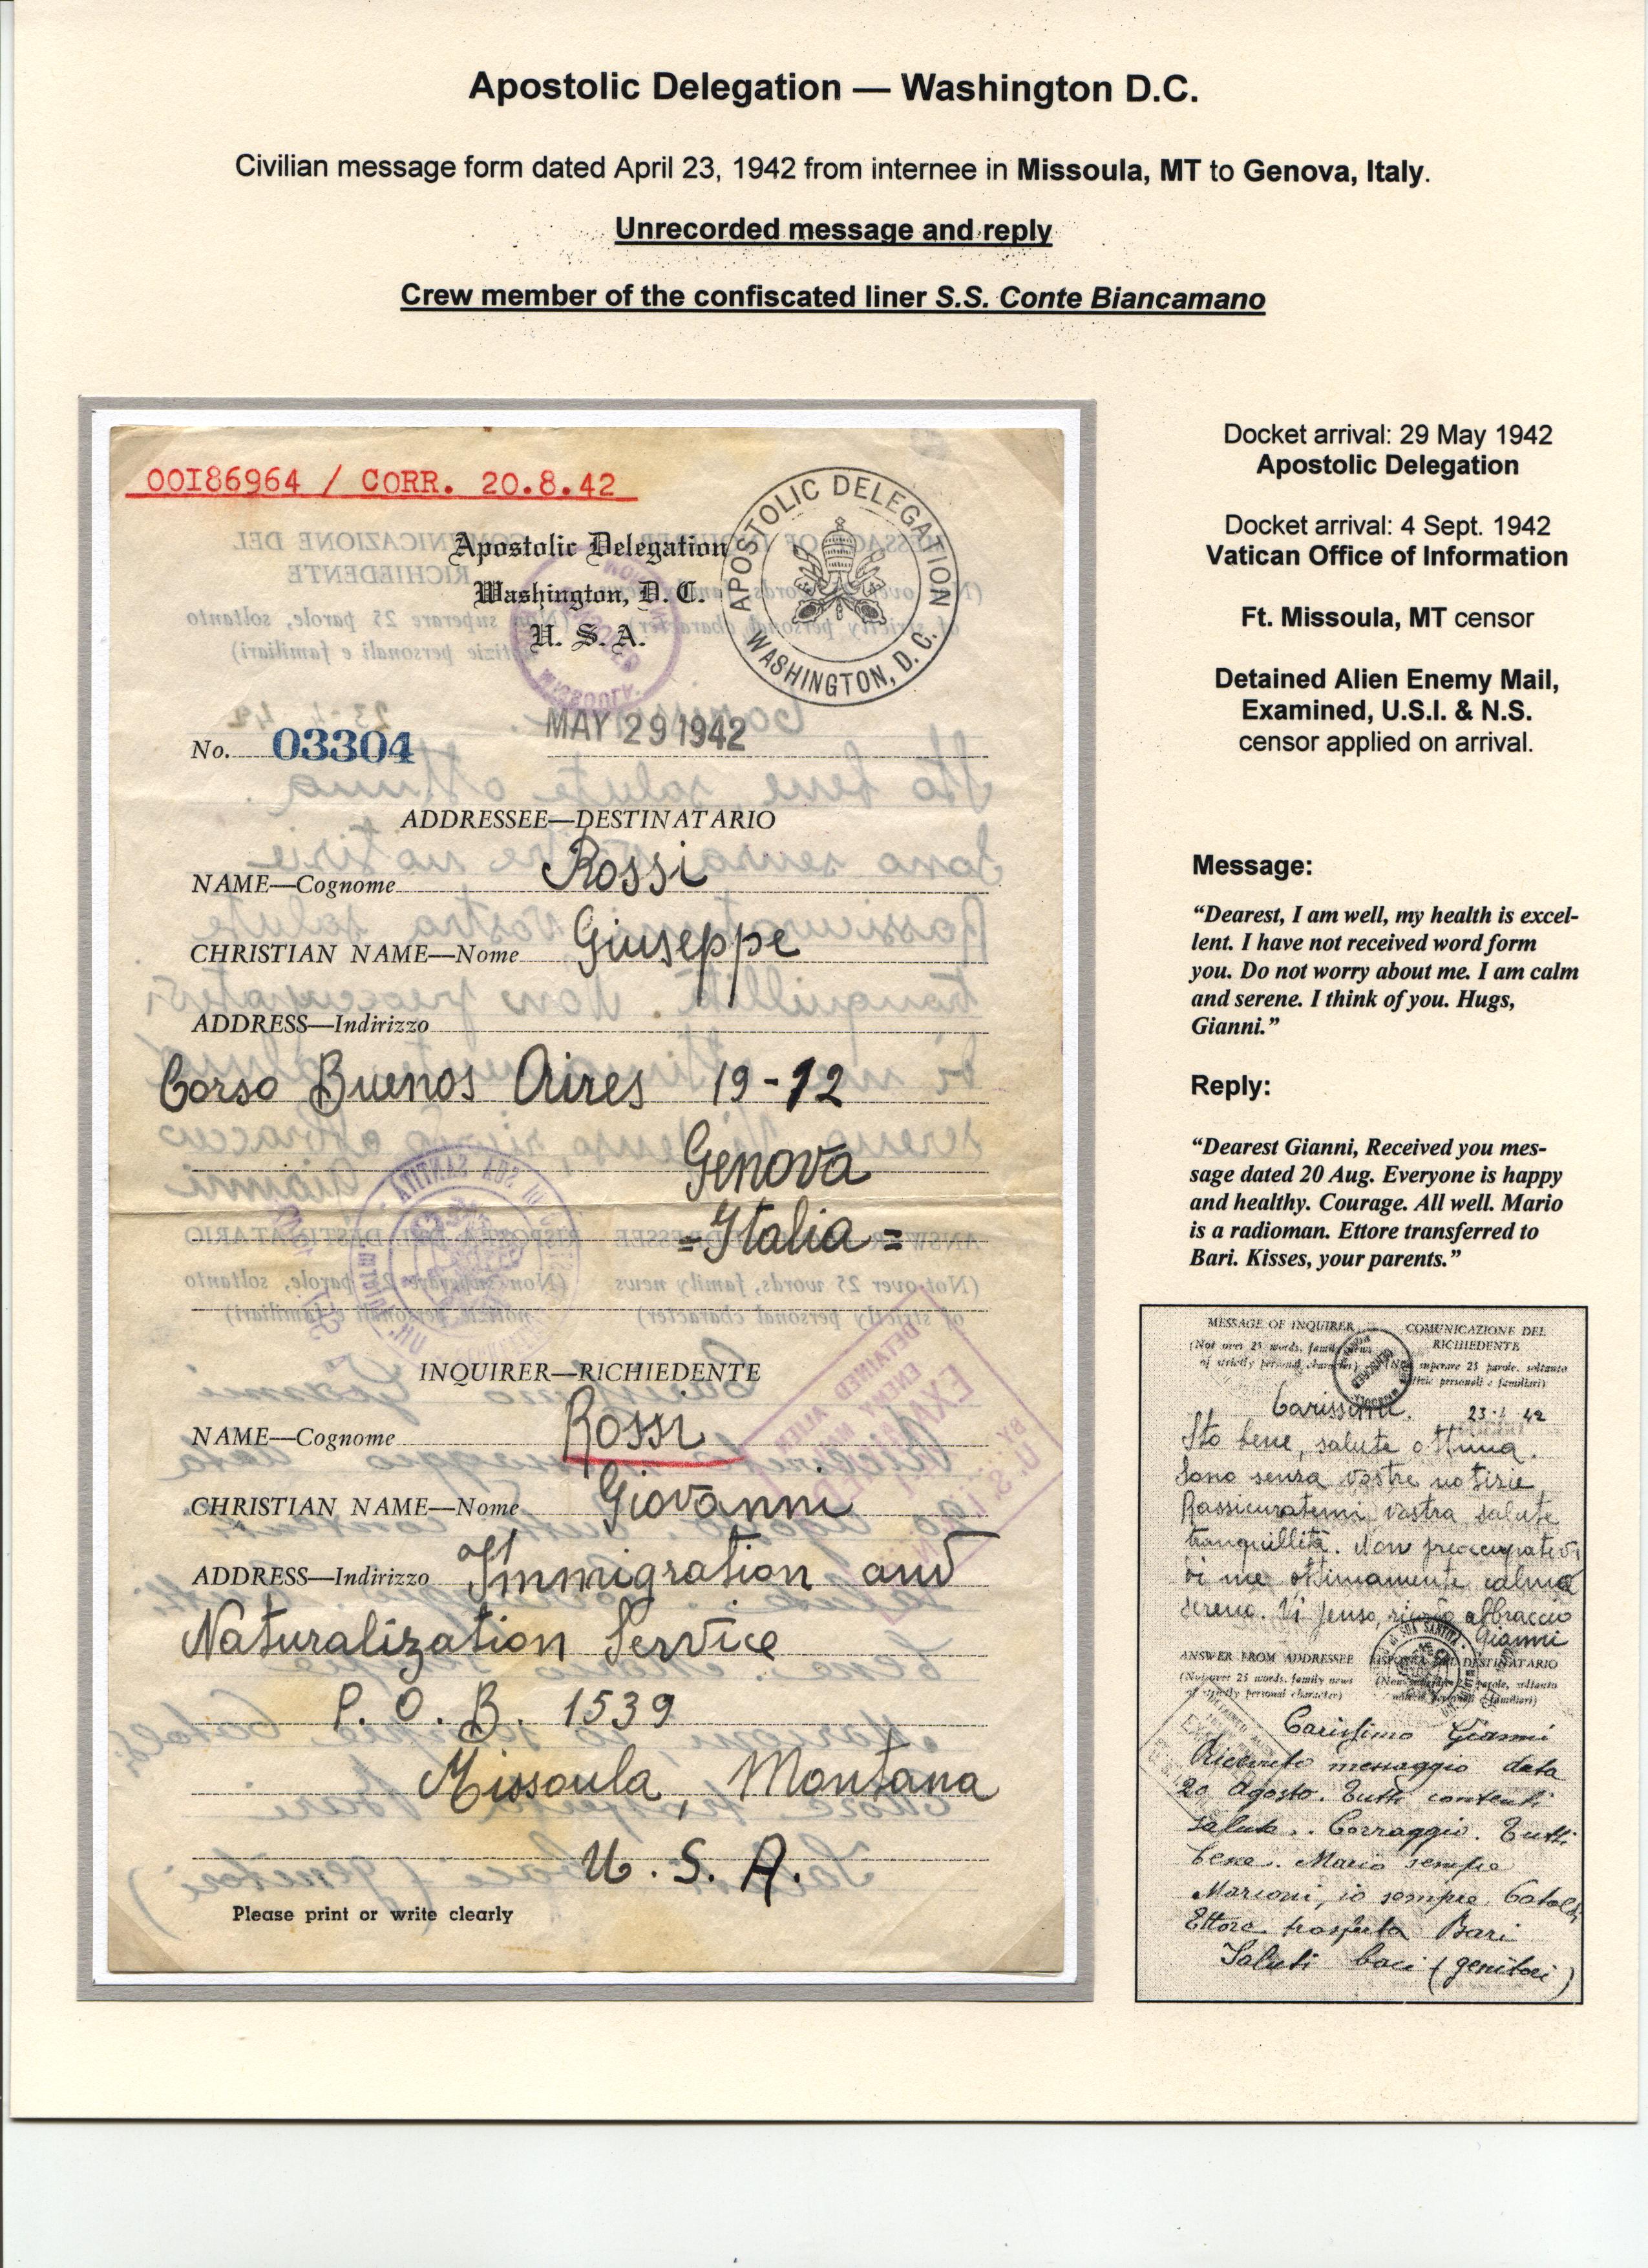 Apostolic Delegation — Washington D.C.
Civilian message form dated April 23, 1942 from internee in Missoula, MT to Genova, Italy.
Unrecorded message and reply
Crew member of the confiscated liner S.S. Conte Biancamano
00I86964 / CORR. 20.8.42
Apostolic Delegation
Washington, D. C.
U. S. A.
APOSTOLIC DELEGATION
WASHINGTON, D. C.
No. 03304
MAY 29 1942
ADDRESSEE—DESTINATARIO
NAME—Cognome Rossi
CHRISTIAN NAME—Nome Giuseppe
ADDRESS—Indirizzo
Corso Buenos Aires 19-12
Genova
=Italia=
INQUIRER—RICHIEDENTE
NAME—Cognome Rossi
CHRISTIAN NAME—Nome Giovanni
ADDRESS—Indirizzo Immigration and
Naturalization Service
P. O. B. 1539
Missoula, Montana
U. S. A.
Please print or write clearly
DETAINED ALIEN
ENEMY MAIL
EXAMINED
BY
U. S. I. & N. S.
Docket arrival: 29 May 1942
Apostolic Delegation
Docket arrival: 4 Sept. 1942
Vatican Office of Information
Ft. Missoula, MT censor
Detained Alien Enemy Mail,
Examined, U.S.I. & N.S.
censor applied on arrival.
Message:
“Dearest, I am well, my health is excel-
lent. I have not received word form
you. Do not worry about me. I am calm
and serene. I think of you. Hugs,
Gianni.”
Reply:
“Dearest Gianni, Received you mes-
sage dated 20 Aug. Everyone is happy
and healthy. Courage. All well. Mario
is a radioman. Ettore transferred to
Bari. Kisses, your parents.”
MESSAGE OF INQUIRER COMUNICAZIONE DEL
RICHIEDENTE
(Not over 25 words, family news superare 25 parole, soltanto
of strictly personal character) notizie personali e familiari)
Carissimi. 23 42
Sto bene, salute ottima.
Sono senza vostre notizie
Rassicuratemi vostra salute
tranquillità. Non preoccupatevi
di me ottimamente calmo
sereno. Vi penso, abbraccio
Gianni
ANSWER FROM ADDRESSEE RISPOSTA DEL DESTINATARIO
(Not over 25 words, family news (Non parole, soltanto
of strictly personal character) familiari)
Carissimo Gianni
Ricevuto messaggio data
20 Agosto. Tutti contenti
salute. Corraggio. Tutti
bene. Mario sempre
Marconi, io sempre
Ettore trasferta Bari
Saluti baci (genitori)